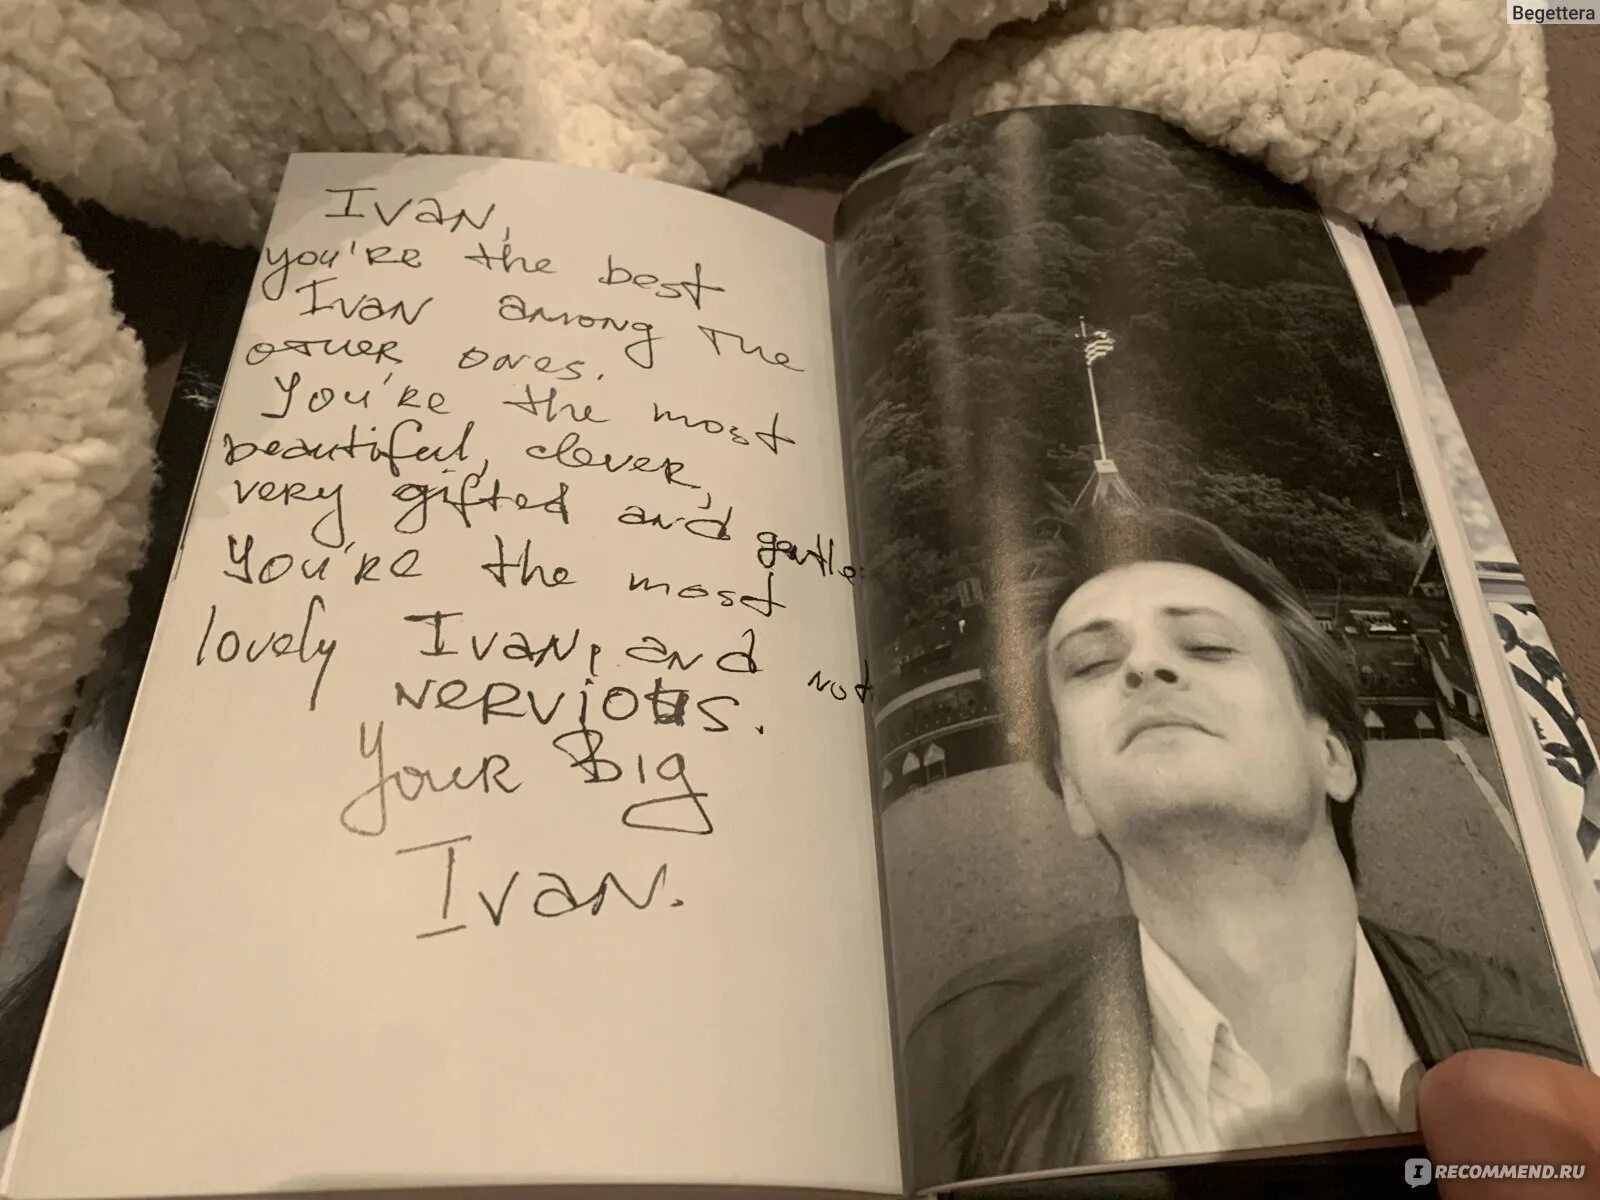 Begettera
Ivan,
you're the best
Ivan among the
other ones.
You're the most
beautiful, clever,
very gifted and gentle.
You're the most
lovely Ivan, and not
nervious.
Your Big
Ivan.
IRECOMMEND.RU